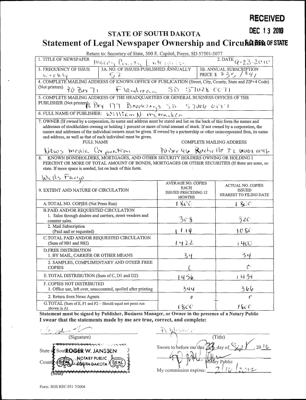 RECEIVED
DEC 13 2010
STATE OF SOUTH DAKOTA
Statement of Legal Newspaper Ownership and Circulation
Return to: Secretary of State, 500 E. Capitol, Pierre, SD 57501-5077
1. TITLE OF NEWSPAPER Moody County Enterprise 2. DATE
3. FREQUENCY OF ISSUE weekly 3A. NO. OF ISSUES PUBLISHED ANNUALLY 52 3B. ANNUAL SUBSCRIPTION PRICE $
4. COMPLETE MAILING ADDRESS OF KNOWN OFFICE OF PUBLICATION (Street, City, County, State and ZIP+4 Code) (Not printers)
PO Box 71 Flandreau SD 57028
5. COMPLETE MAILING ADDRESS OF THE HEADQUARTERS OR GENERAL BUSINESS OFFICES OF THE PUBLISHER (Not printers)
Box 177 Brookings SD 57006
6. FULL NAME OF PUBLISHER: William
7. OWNER (If owned by a corporation, its name and address must be stated and also on the back of this form the names and addresses of stockholders owning or holding 1 percent or more of total amount of stock. If not owned by a corporation, the names and addresses of the individual owners must be given. If owned by a partnership or other unincorporated firm, its name and address, as well as that of each individual must be given.)
FULL NAME COMPLETE MAILING ADDRESS
News Media Corporation
8. KNOWN BONDHOLDERS, MORTGAGEES, AND OTHER SECURITY HOLDERS OWNING OR HOLDING 1 PERCENT OR MORE OF TOTAL AMOUNT OF BONDS, MORTGAGES OR OTHER SECURITIES (If there are none, so state. If more space is needed, list on back of this form.
Wells Fargo
9. EXTENT AND NATURE OF CIRCULATION
AVERAGE NO. COPIES EACH ISSUE DURING PRECEDING 12 MONTHS
ACTUAL NO. COPIES ISSUED NEAREST TO FILING DATE
A. TOTAL NO. COPIES (Net Press Run) 1800 1800
B. PAID AND/OR REQUESTED CIRCULATION
1. Sales through dealers and carriers, street vendors and counter sales.
2. Mail Subscription (Paid and/or requested)
C. TOTAL PAID AND/OR REQUESTED CIRCULATION (Sum of 9B1 and 9B2) 1422 1400
D. FREE DISTRIBUTION
1. BY MAIL, CARRIER OR OTHER MEANS 34 34
2. SAMPLES, COMPLIMENTARY AND OTHER FREE COPIES
E. TOTAL DISTRIBUTION (Sum of C, D1 and D2) 1456 1434
F. COPIES NOT DISTRIBUTED
1. Office use, left over, unaccounted, spoiled after printing 344 366
2. Return from News Agents
G. TOTAL (Sum of E, F1 and F2 - Should equal net press run shown in A) 1800 1800
Statement must be signed by Publisher, Business Manager, or Owner in the presence of a Notary Public
I swear that the statements made by me are true, correct, and complete:
(Signature) (Title)
State
ROGER W. JANSSEN
NOTARY PUBLIC
SOUTH DAKOTA
Sworn to before me this day of Sept 2010
My commission expires:
Form: SOS REC 051 7/2004